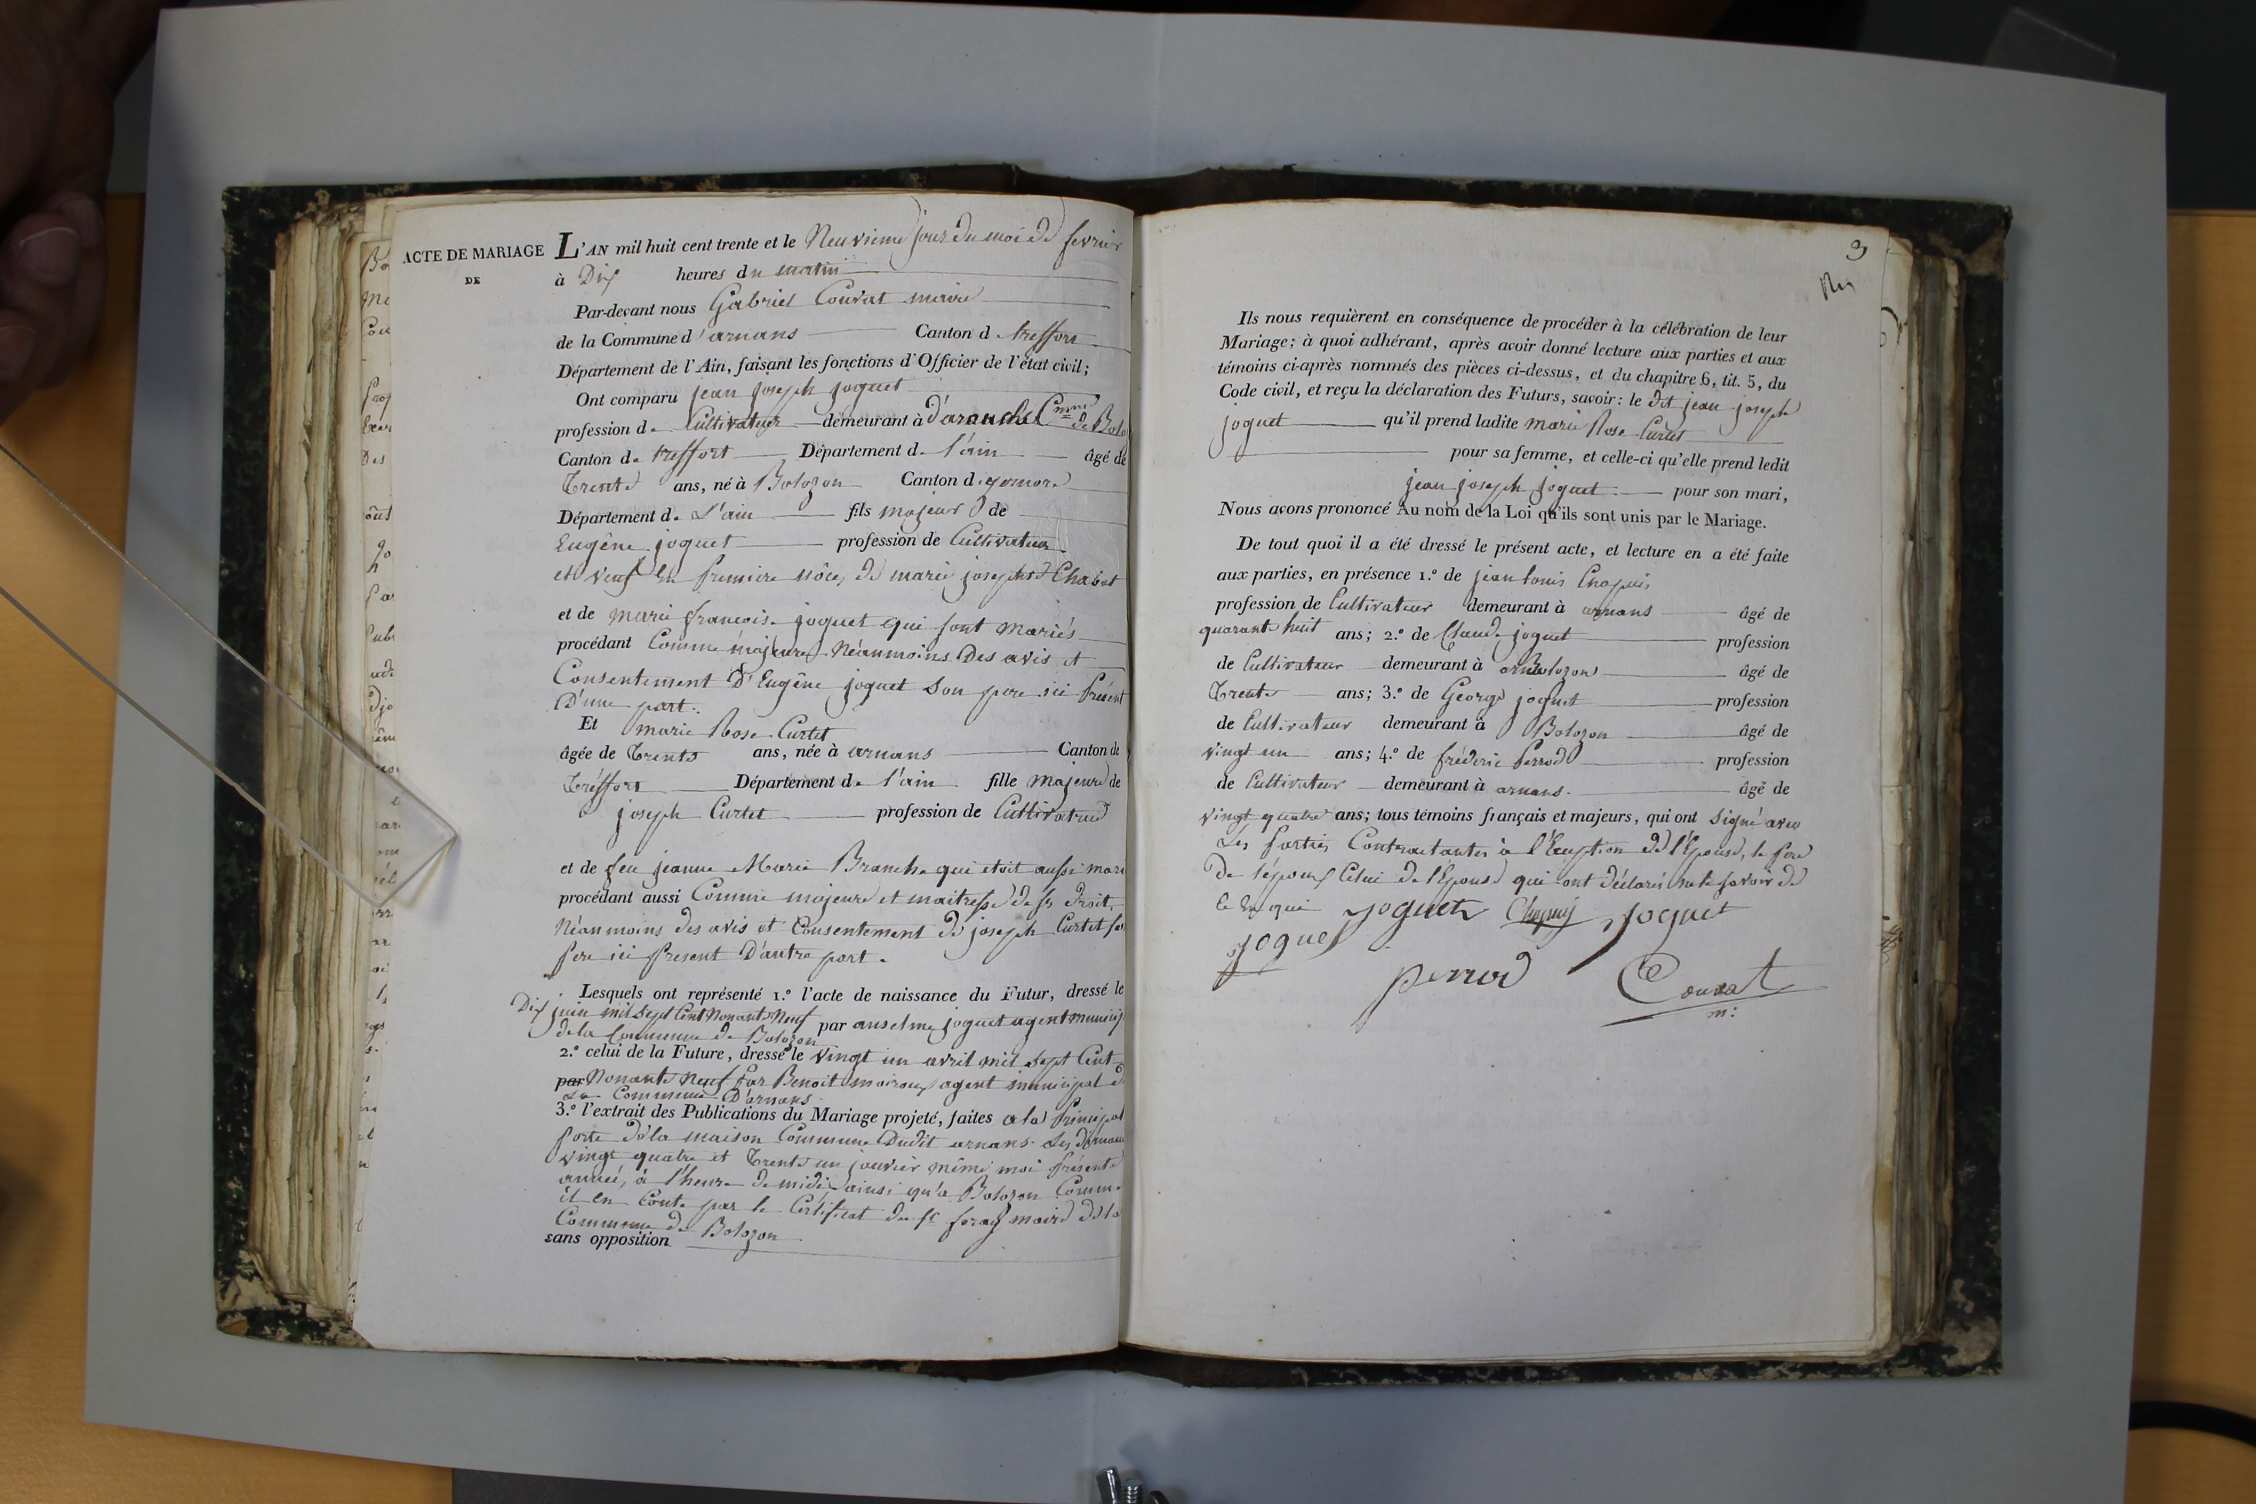 ACTE DE MARIAGE
DE
L'AN mil huit cent trente et le Neuvieme jour du moi de fevrier
à Dix heures du matin
Par-devant nous Gabriel Couvat maire
de la Commune d'arnans Canton de treffort
Département de l'Ain, faisant les fonctions d'Officier de l'état civil;
Ont comparu jean joseph joguet
profession de Cultivateur demeurant à Cmne de Bolo
Canton de treffort Département de l'ain âgé de
Trente ans, né à Bolozon Canton d
Département de L'ain fils majeur de
Eugêne joguet profession de Cultivateur
et veuf en premiere nôce, de marie josephte Chabut
et de marie francoise joguet qui sont mariés
procédant Comme majeure Néanmoins Des avis et
Consentement D'Eugêne joguet Son pere ici présent
D'une part.
Et marie Rose Curtet
âgée de Trente ans, née à arnans Canton de
Tréffort Département de l'ain fille majeure de
joseph Curtet profession de Cultivateur
et de feu jeanne Marie Branche qui etoit aussi mari
procédant aussi Comme majeure et maitresse de ses droit,
Néanmoins des avis et Consentement de joseph Curtet so
pere ici présent D'autre part.
Lesquels ont représenté 1.º l'acte de naissance du Futur, dressé le
Dix juin mil sept Cent Nonante Neuf par anselme joguet agent municip
de la Commune de Bolozon
2.º celui de la Future, dressé le vingt un avril mil sept Cent
par Nonante Neuf par Benoit agent municipal de
la Commune D'arnans
3.º l'extrait des Publications du Mariage projeté, faites a la principal
porte de la maison Commune Dudit arnans Les dimanc
vingt quatre et Trente un janvier même moi présente
année, à l'heure de midi ainsi qu'a Bolozon Comme
il en Conte par le Certificat du sr maire de la
Commune de Bolozon
sans opposition
3
Ils nous requièrent en conséquence de procéder à la célébration de leur
Mariage; à quoi adhérant, après avoir donné lecture aux parties et aux
témoins ci-après nommés des pièces ci-dessus, et du chapitre 6, tit. 5, du
Code civil, et reçu la déclaration des Futurs, savoir: le dit jean joseph
joguet qu'il prend ladite marie Rose Curtet
pour sa femme, et celle-ci qu'elle prend ledit
jean joseph joguet pour son mari,
Nous avons prononcé Au nom de la Loi qu'ils sont unis par le Mariage.
De tout quoi il a été dressé le présent acte, et lecture en a été faite
aux parties, en présence 1.º de jean louis Chapuis
profession de Cultivateur demeurant à arnans âgé de
quarante huit ans; 2.º de Claude joguet profession
de Cultivateur demeurant à Bolozon âgé de
Trente ans; 3.º de George joguet profession
de Cultivateur demeurant à Bolozon âgé de
vingt un ans; 4.º de fréderic Perrod profession
de Cultivateur demeurant à arnans. âgé de
vingt quatre ans; tous témoins français et majeurs, qui ont signé avec
Les parties Contractantes à l'Exeption de l'Epouse, le pere
de l'époux Celui de l'Epouse qui ont déclarés ne le savoir de
ce Enquis joguet Chapuis joguet
joguet
perrod Couvat
m: